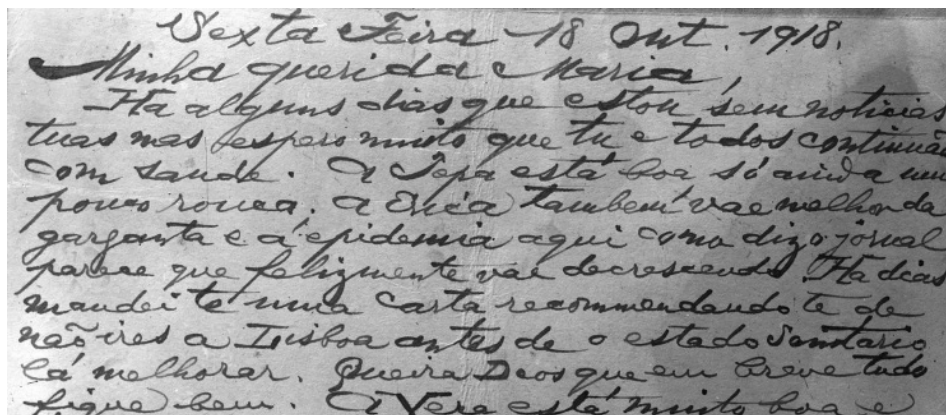 Sexta Feira 18 Out. 1918.
Minha querida Maria,
Ha alguns dias que estou sem noticias
tuas mas espero muito que tu e todos continuão
com saude. A Pepa está boa só ainda um
pouco rouca; a Erica tambem vae melhor da
garganta e a epidemia aqui como diz o jornal
parece que felizmente vae decrescendo. Ha dias
mandei te uma carta recommendando te de
não ires a Lisboa antes de o estado sanitario
lá melhorar. Queira Deos que em breve tudo
fique bem. A Vera está muito boa e